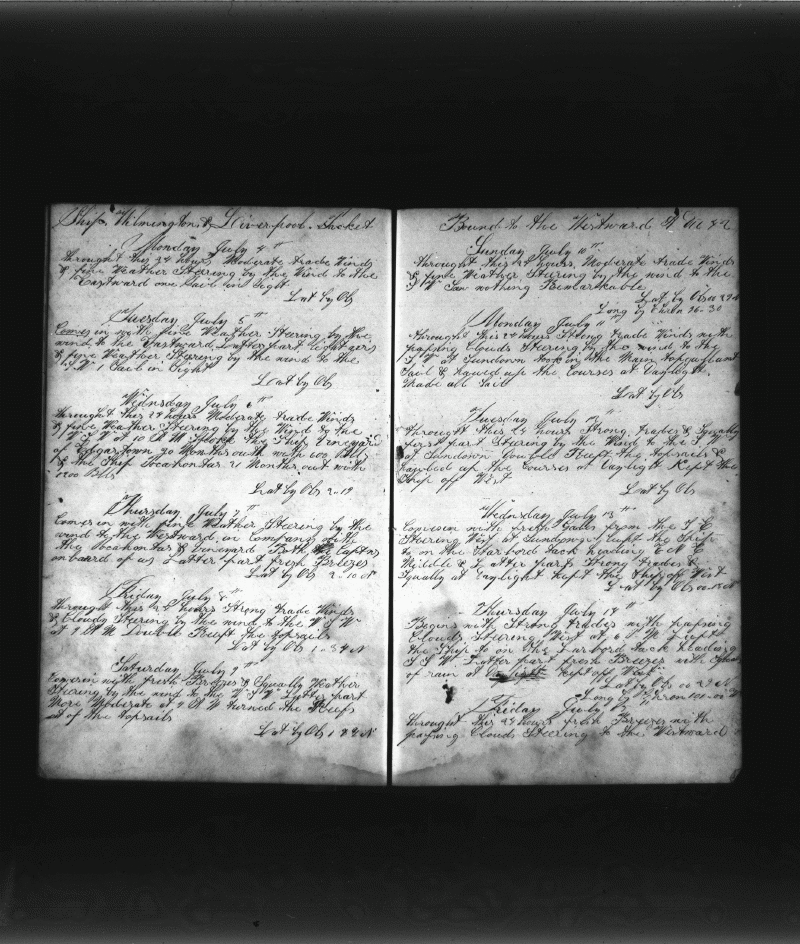 Ship Wilmington & Liverpool Packet
Monday July 4"
throught this 24 hours Moderate trade Winds
& fine Weather Steering by the Wind to the
Eastward one Sail in Sight
Lat by Obs
Tuesday July 5"
Comes in with fine Weather Steering by the
wind to the Eastward Latter part
& fine Weather Steering by the wind to the
1 Sail in Sight
Lat by Obs
Wednsday July 6"
throught this 24 hours Moderate trade Winds
& fine Weather Steering by the Wind by the
at 10 A M Spoke the Ship Vineyard
of Edgartown 20 Months outh with 600 Bbls
& the Ship Pocahontas 21 Months out with
1200 Bbls
Lat by Obs 2-19
Thursday July 7"
Comes in with fine Weather Steering by the
wind to the Westward in Company with
the Pocahontas & Vineyard Both the Captns
on board of us Latter part fresh Breezes
Lat by Obs 2-10 N
Friday July 8"
throught this 24 hours Strong trade Winds
& Cloudy Steering by the wind to the W S W
at 7 P M Double Reeft the topsails
Lat by Obs 1-54 N
Saturday July 9"
Comes in with fresh Breezes & Squally Weather
Steering by the wind to the W S W Latter part
More Moderate at 7 A M turned the Reefs
out of the topsails
Lat by Obs N
Bound to the Westward
Sunday July 10"
throught this 24 hours Moderate trade Winds
& fine Weather Steering by the wind to the
S W Saw nothing Remarkable
Lat by Obs
Long by Chron 96-30
Monday July 11
throught this 24 hours Strong trade Winds with
passing Clouds Steering by the wind to the
S W at Sundown took in the Main topgallant
Sail & hawled up the Courses at Daylight
Made all Sail
Lat by Obs
Tuesday July 12"
throught this 24 hours Strong trades & Squally
first part Steering by the Wind to the S W
at Sundown Doubld Reeft the topsails &
hawled up the Courses at Daylight Kept the
Ship off West
Lat by Obs
Wednsday July 13"
Comes in with fresh Gales from the S E
Steering West at Sundown Luft the Ship
to on the Starbord tack heading E N E
Middle & Latter parts Strong trades &
Squally at Daylight kept the Ship off West
Lat by Obs
Thursday July 14"
Begins with Strong trades with passing
Clouds Steering West at 6 P M Luft
the Ship to on the Larbord tack heading
S S W Latter part fresh Breezes with
of rain at kept off West
Lat by Obs 00 22 N
Long by Chron 100-00 W
Friday July 15"
throught this 24 hours fresh Breezes with
passing Clouds Steering to the Westward